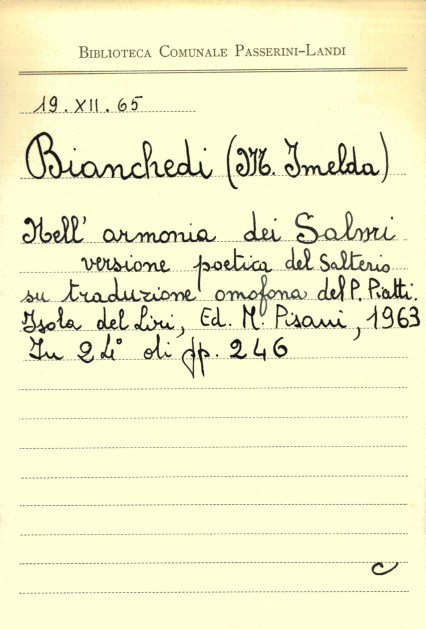 BIBLIOTECA COMUNALE PASSERINI-LANDI
19.XII.65
Bianchedi (M. Imelda)
Nell' armonia dei Salmi
versione poetica del Salterio
su traduzione omofona del P. Piatti.
Isola del Liri, Ed. M. Pisani, 1963
In 24° di pp. 246
c